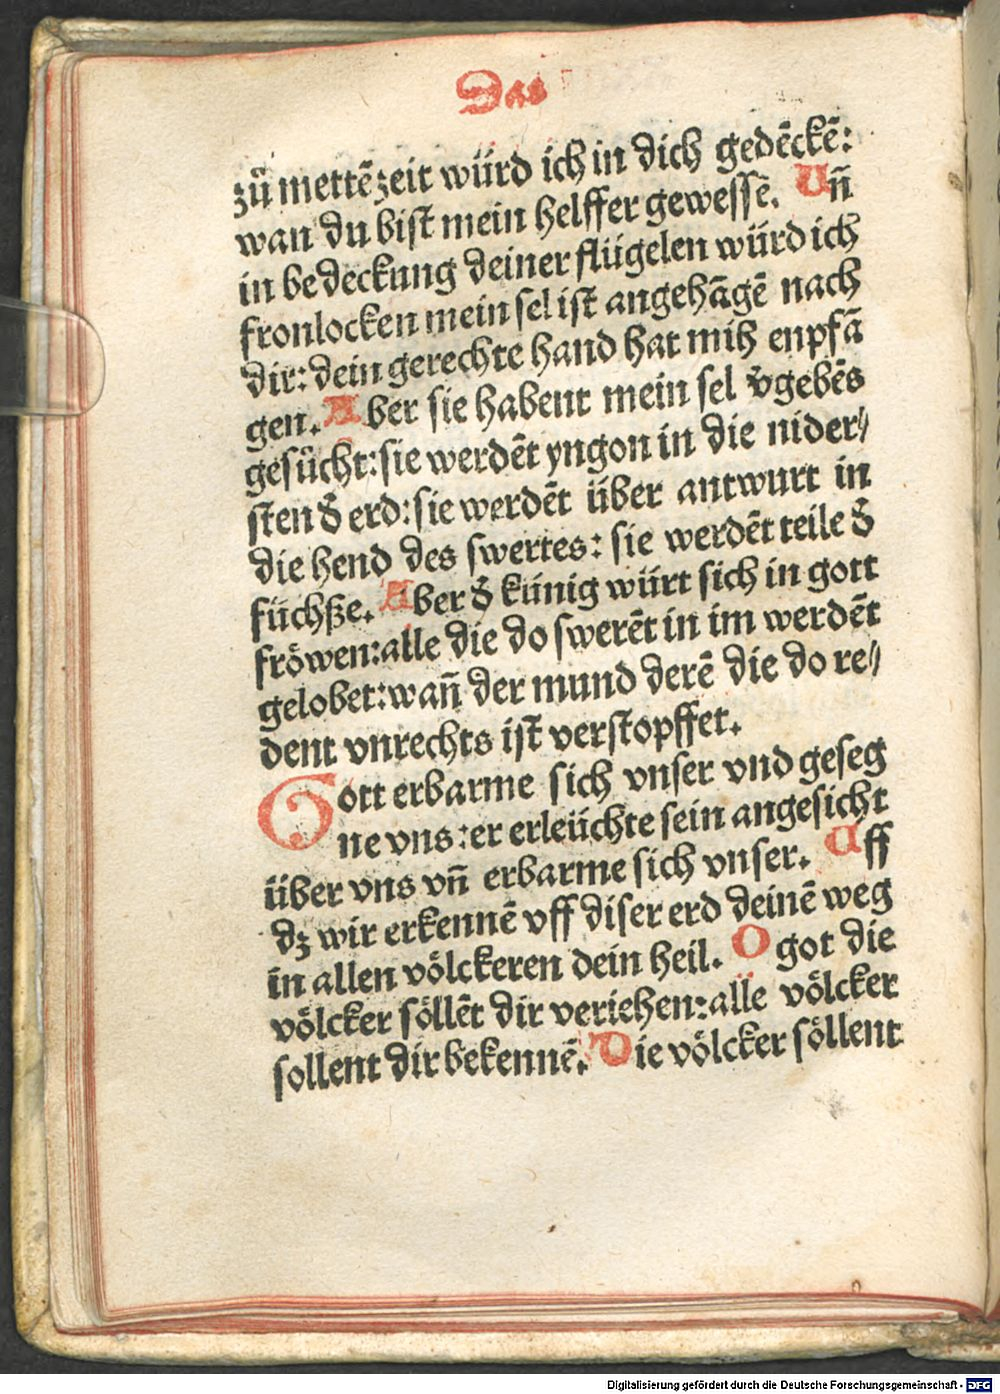 Das
zů mettẽzeit würd ich in dich gedẽckẽ:
wan du bist mein helffer gewessẽ. Vñ
in bedeckung deiner flügelen würd ich
fronlocken mein sel ist angehãgẽ nach
dir: dein gerechte hand hat mih enpfã
gen. Aber sie habent mein sel v̄gebẽs
gesůcht: sie werdẽt yngon in die nider⸗
sten d̄ erd: sie werdẽt über antwurt in
die hend des swertes: sie werdẽt teile d̄
füchße. Aber d̄ künig würt sich in gott
fröwen: alle die do swerẽt in im werdẽt
gelobet: wañ der mund derẽ die do re⸗
dent vnrechts ist verstopffet.
Gott erbarme sich vnser vnd geseg
ne vns: er erleüchte sein angesicht
über vns vñ erbarme sich vnser. Uff
dz wir erkennẽ vff diser erd deinẽ weg
in allen völckeren dein heil. O got die
völcker söllẽt dir veriehen: alle völcker
sollent dir bekennẽ. Die völcker söllent
Digitalisierung gefördert durch die Deutsche Forschungsgemeinschaft - DFG